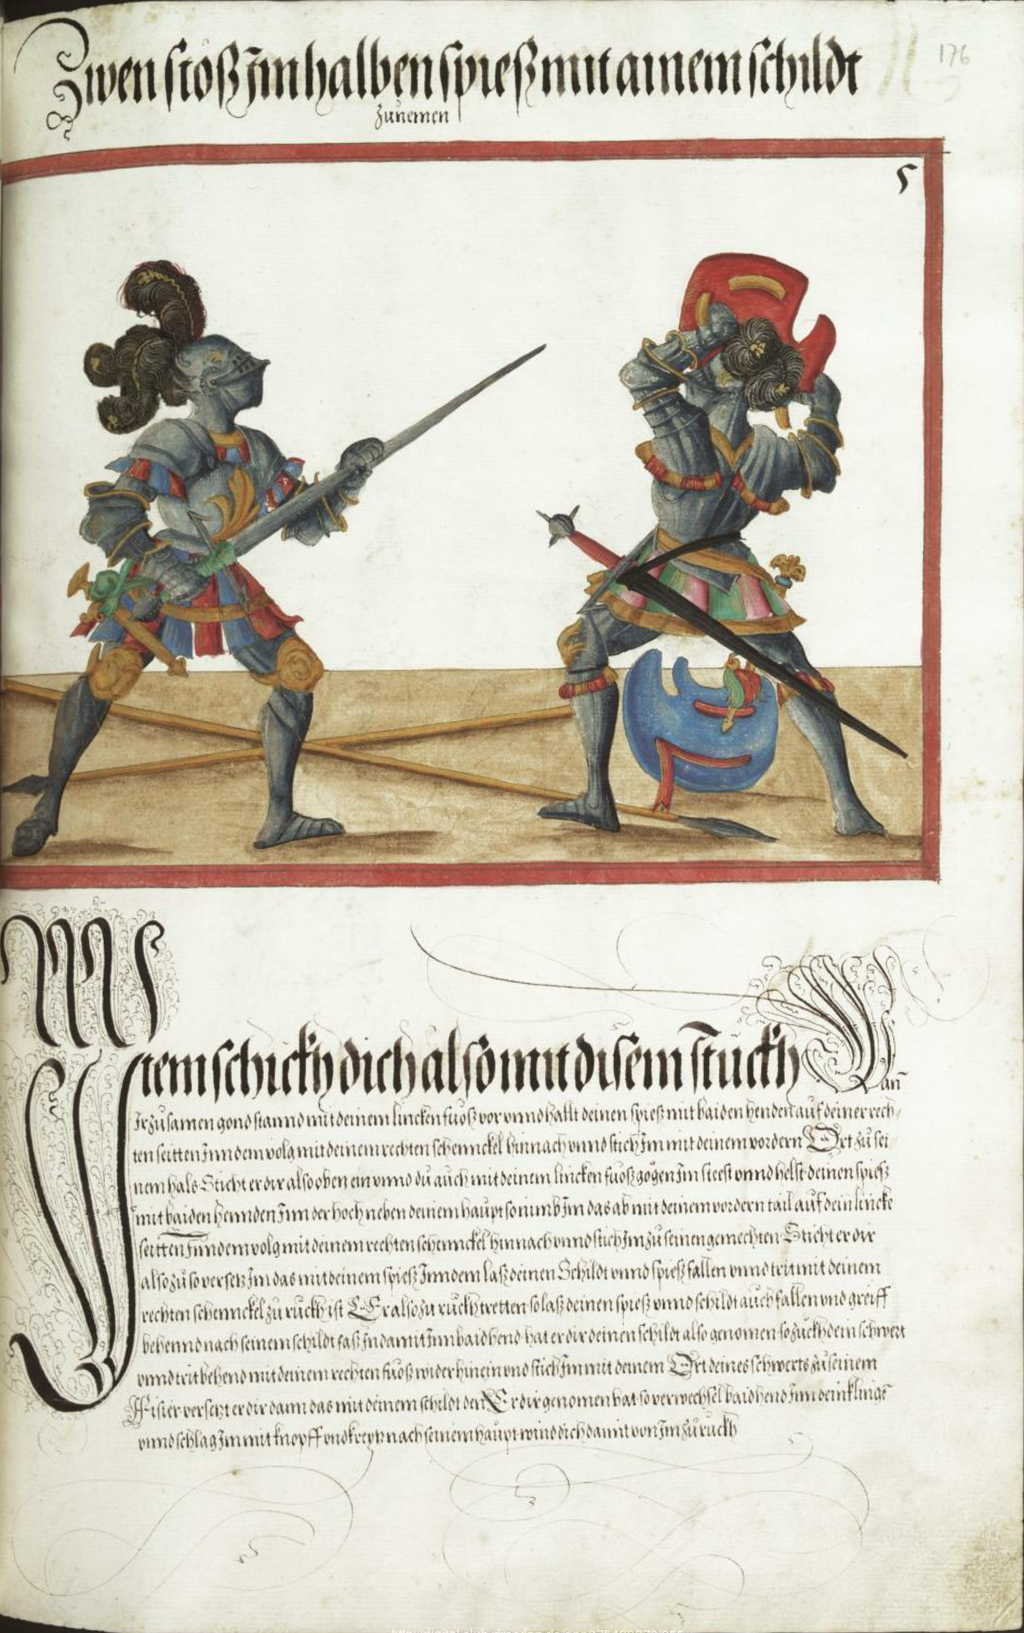 Zwen stöß Im halben spieß mit ainem schildt
zunemen
176
5
Item schickh dich also mit disem stuckh Wan
Ir zusamen gond stannd mit deinem lincken fuoß vor vnnd hallt deinen spieß mit baiden henden auf deiner rech-
ten seitten Inn dem volg mit deinem rechten schennckel hinnach vnnd stich Im mit deinem vordern Ort zu sei
nem hals Sticht er dir also oben ein vnnd du auch mit deinem lincken fuoß gögen Im steest vnnd helst deinen spieß
mit baiden hennden Inn der hoch neben deinem haupt so nimb Im das ab mit deinem vordern tail auf dein lincke
seitten Inn dem volg mit deinem rechten schennckel hinnach vnnd stich Im zu seinen gemechten Sticht er dir
also zu so versetz Im das mit deinem spieß Inn dem laß deinen Schildt vnnd spieß fallen vnnd trit mit deinem
rechten schennckel zu ruckh ist Er also zu ruckh tretten so laß deinen spieß vnnd schildt auch fallen vnd greiff
behennd nach seinem schildt faß In damit Inn baid hend hat er dir deinen schildt also genomen so zuckh dein schwert
vnnd trit behend mit deinem rechten fuoß wider hinein vnd stich Im mit deinem Ort deines schwerts zu seinem
Fisier versetzt er dir dann das mit deinem schildt den Er dir genomen hat so verwechsel baid hend Inn dein klingen
vnnd schlag Im mit knopff vnd kreytz nach seinem haupt wind dich damit von Im zu ruckh